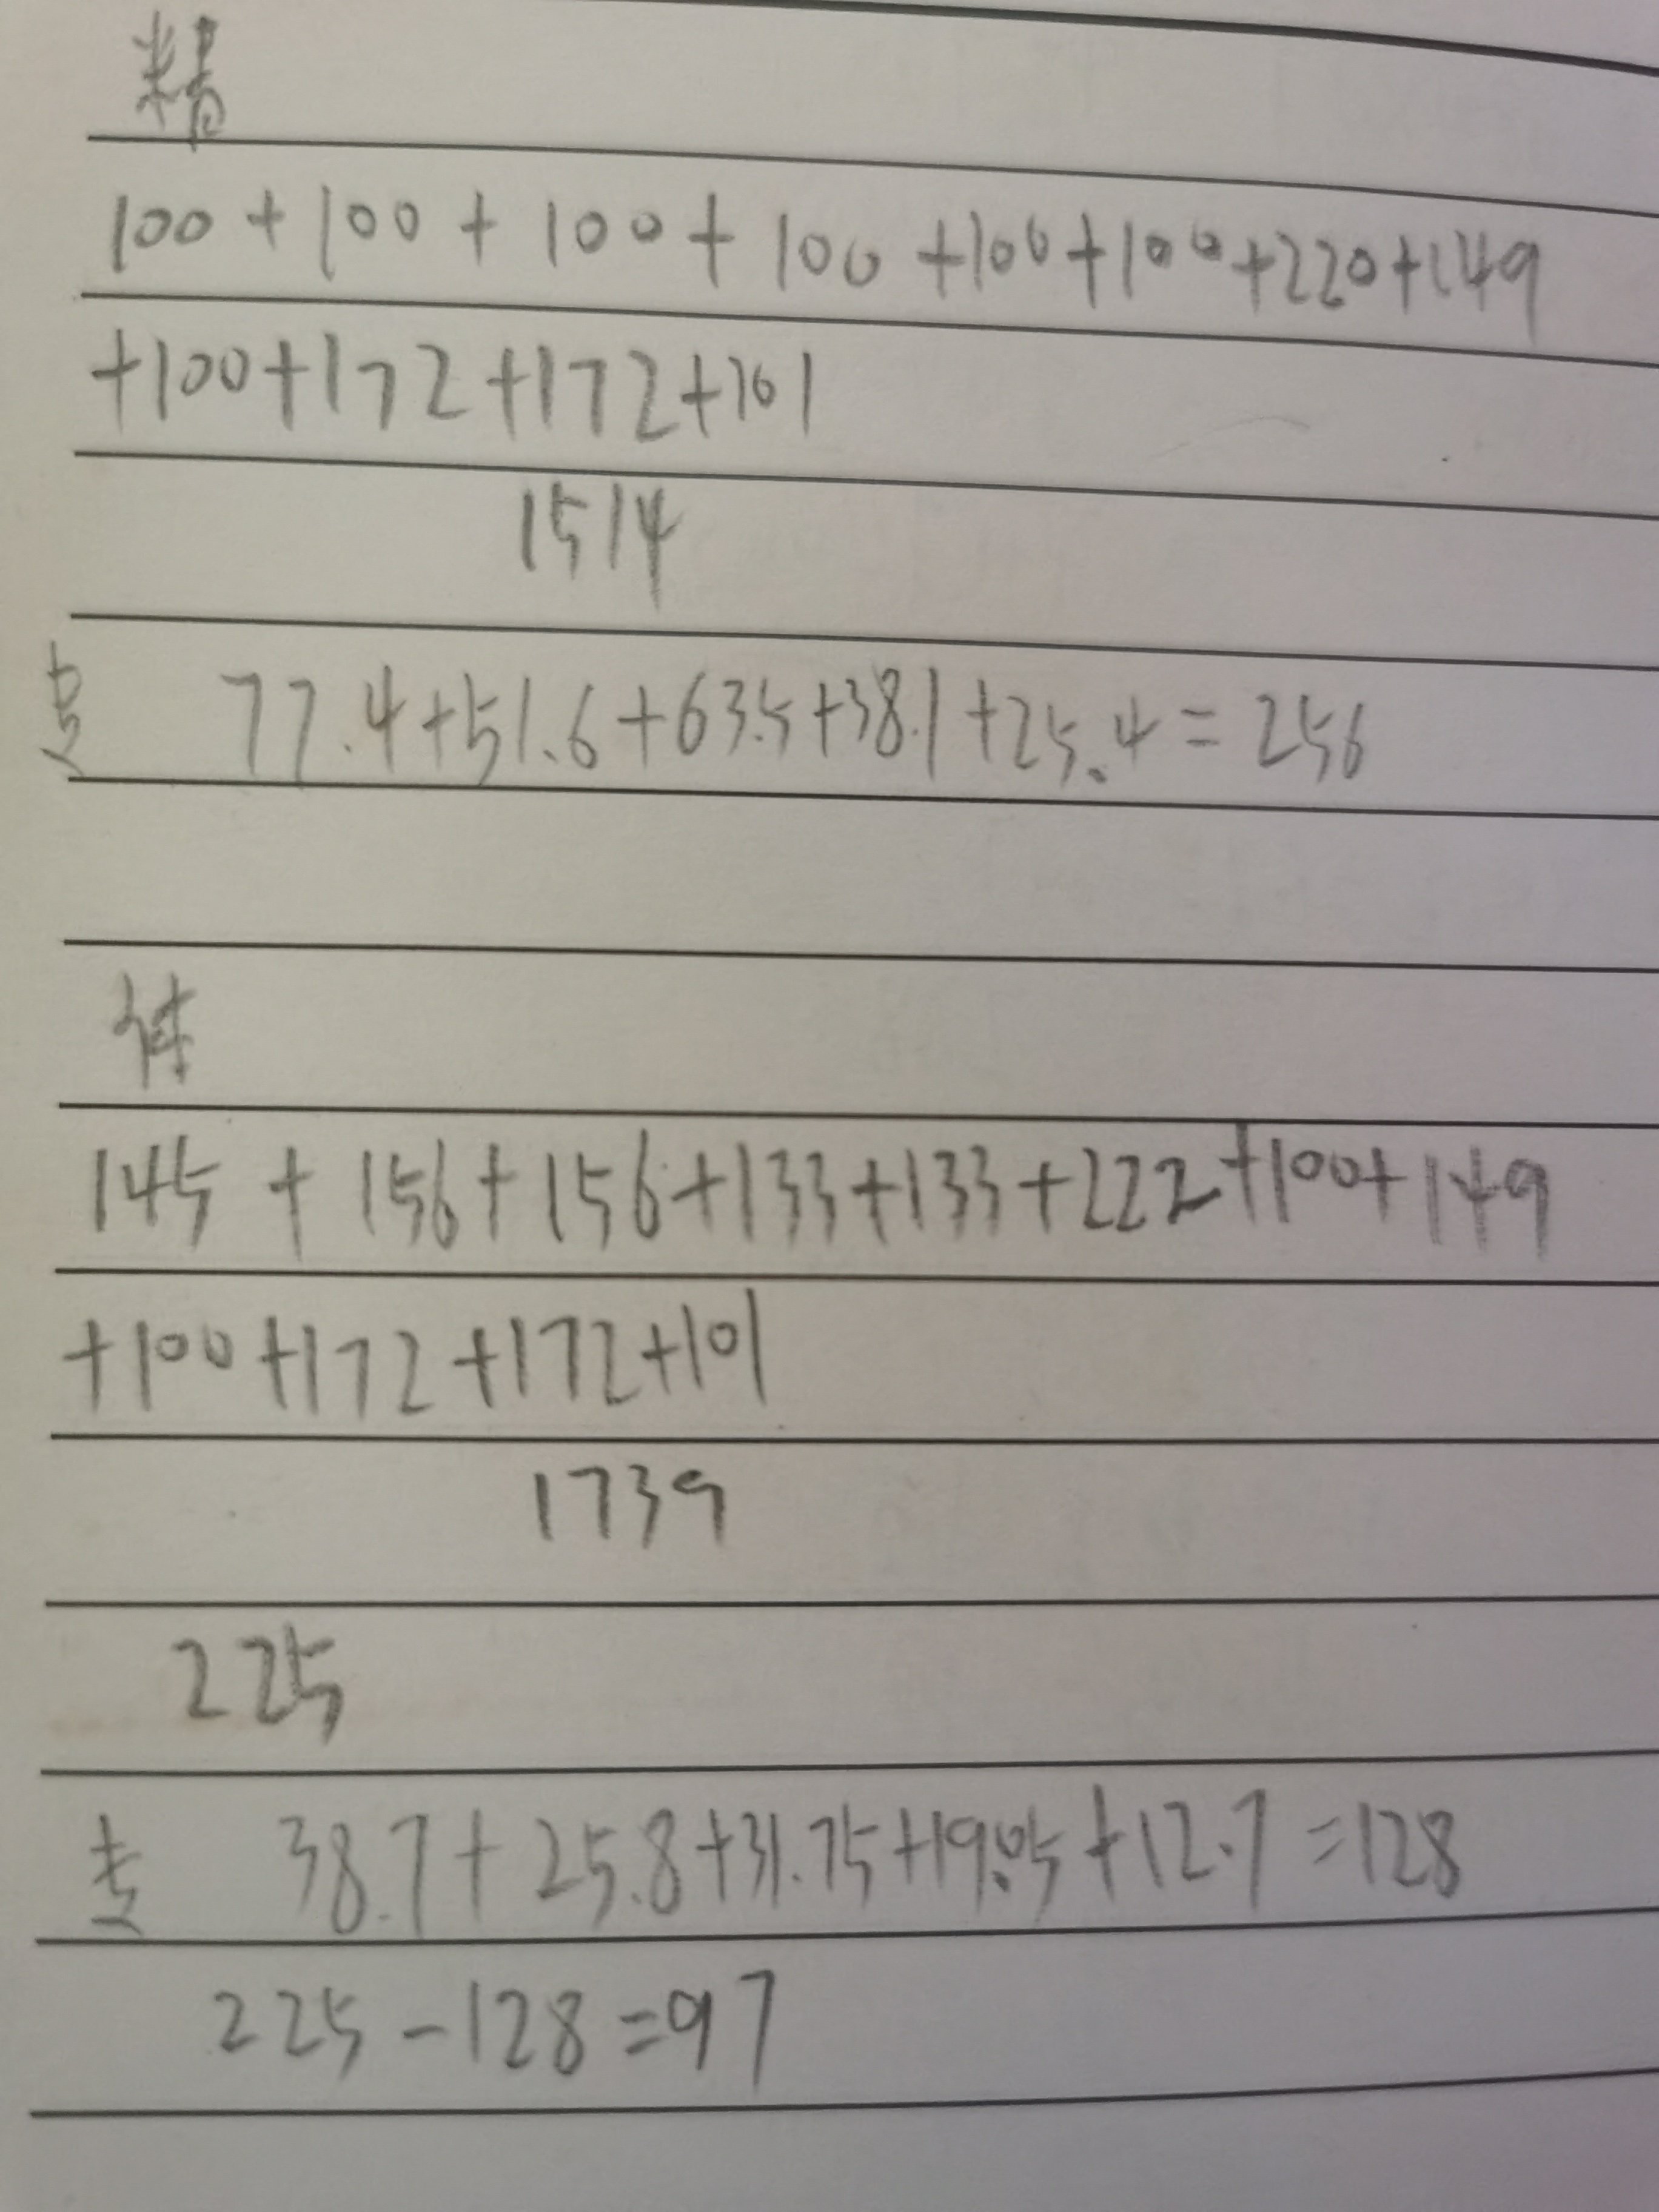 精
100+100+100+100+100+100+220+149
+100+172+172+101
1514
专 77.4+51.6+63.5+38.1+25.4=256
体
145+156+156+133+133+222+100+149
+100+172+172+101
1739
225
专 38.7+25.8+31.75+19.05+12.7=128
225-128=97